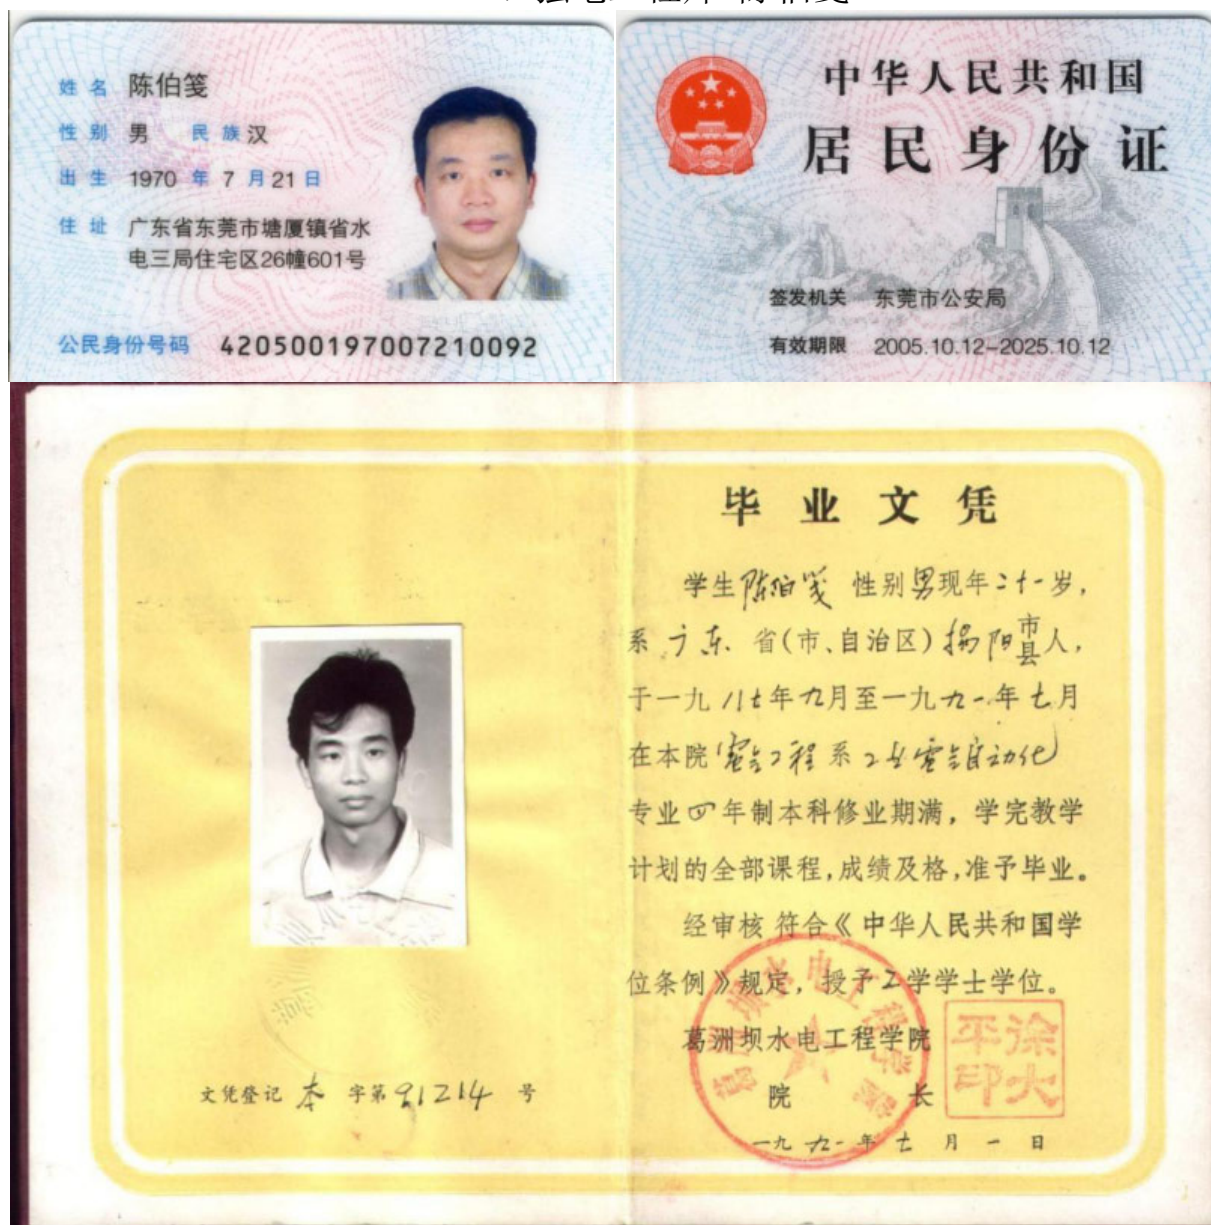 姓名 陈伯笺
性别 男 民族 汉
出生 1970 年 7 月 21 日
住址 广东省东莞市塘厦镇省水
电三局住宅区26幢601号
公民身份号码 420500197007210092
中华人民共和国
居民身份证
签发机关 东莞市公安局
有效期限 2005.10.12-2025.10.12
毕业文凭
学生陈伯笺 性别男现年二十一岁,
系广东省(市、自治区)揭阳市县人,
于一九八七年九月至一九九一年七月
在本院電气工程系工业電气自动化
专业四年制本科修业期满，学完教学
计划的全部课程,成绩及格,准予毕业。
经审核符合《中华人民共和国学
位条例》规定，授予工学学士学位。
葛洲坝水电工程学院
院 长
徐大平印
一九九一年七月一日
文凭登记 本 字第 91214 号